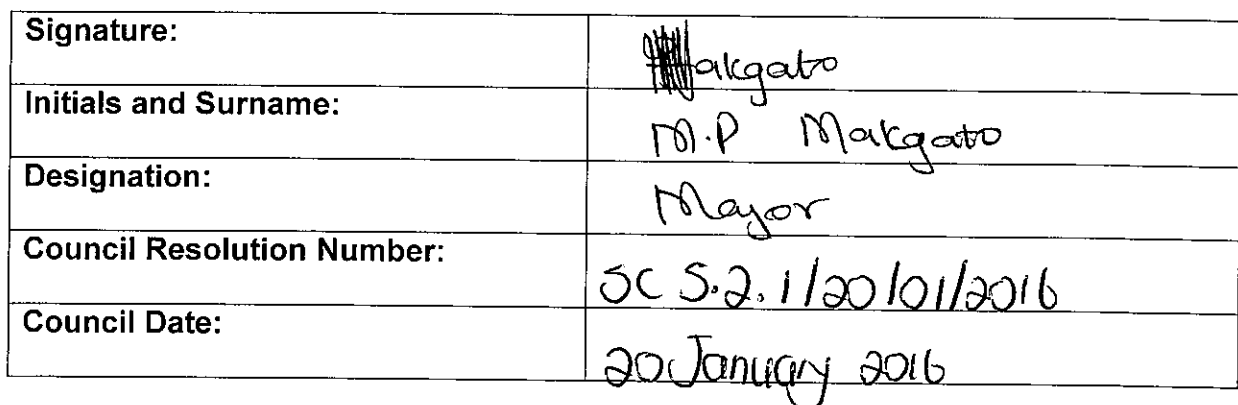 Signature: Makgato
Initials and Surname: M.P Makgato
Designation: Mayor
Council Resolution Number: SC 5.2.1/20/01/2016
Council Date: 20 January 2016